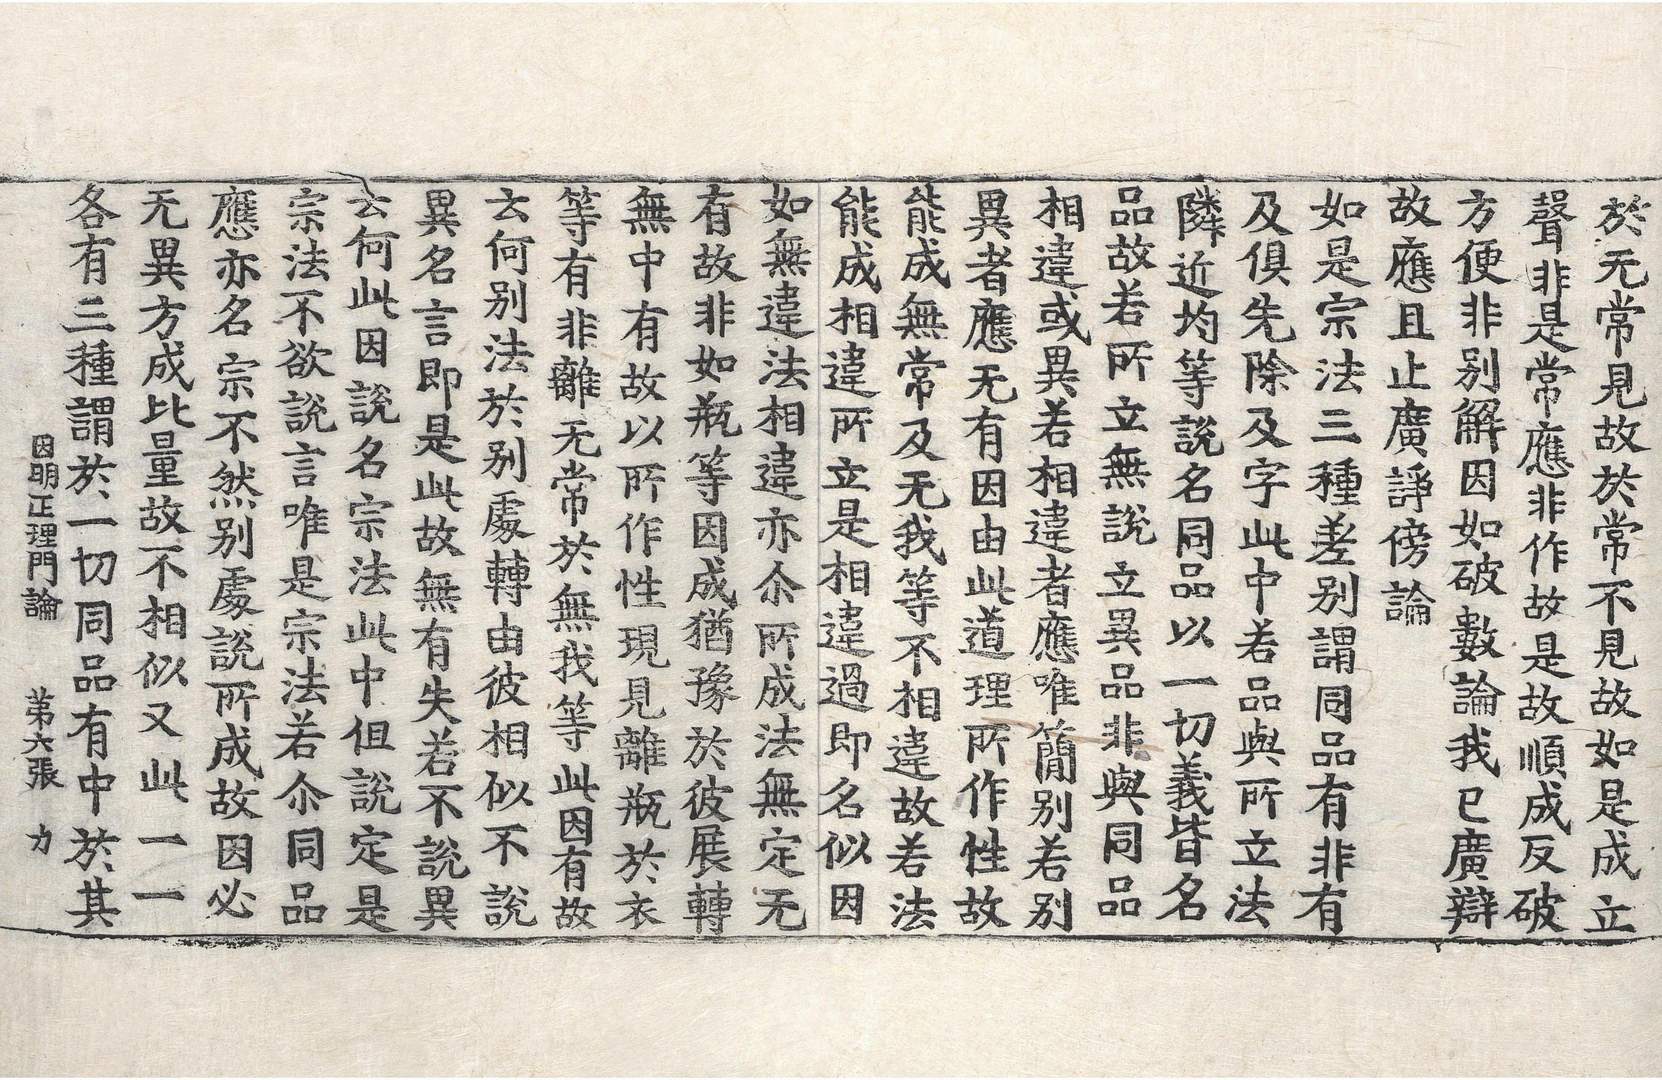 於无常見故於常不見故如是成立
聲非是常應非作故是故順成反破
方便非别解因如破數論我已廣辯
故應且止廣諍傍論
如是宗法三種差别謂同品有非有
及俱先除及字此中若品與所立法
隣近均等說名同品以一切義皆名
品故若所立無說立異品非與同品
相違或異若相違者應唯簡别若别
異者應无有因由此道理所作性故
能成無常及无我等不相違故若法
能成相違所立是相違過即名似因
如無違法相違亦尒所成法無定无
有故非如瓶等因成猶豫於彼展轉
無中有故以所作性現見離瓶於衣
等有非離无常於無我等此因有故
云何别法於别處轉由彼相似不說
異名言即是此故無有失若不說異
云何此因說名宗法此中但說定是
宗法不欲說言唯是宗法若尒同品
應亦名宗不然别處說所成故因必
无異方成比量故不相似又此一一
各有三種謂於一切同品有中於其
因明正理門論 苐六張 力